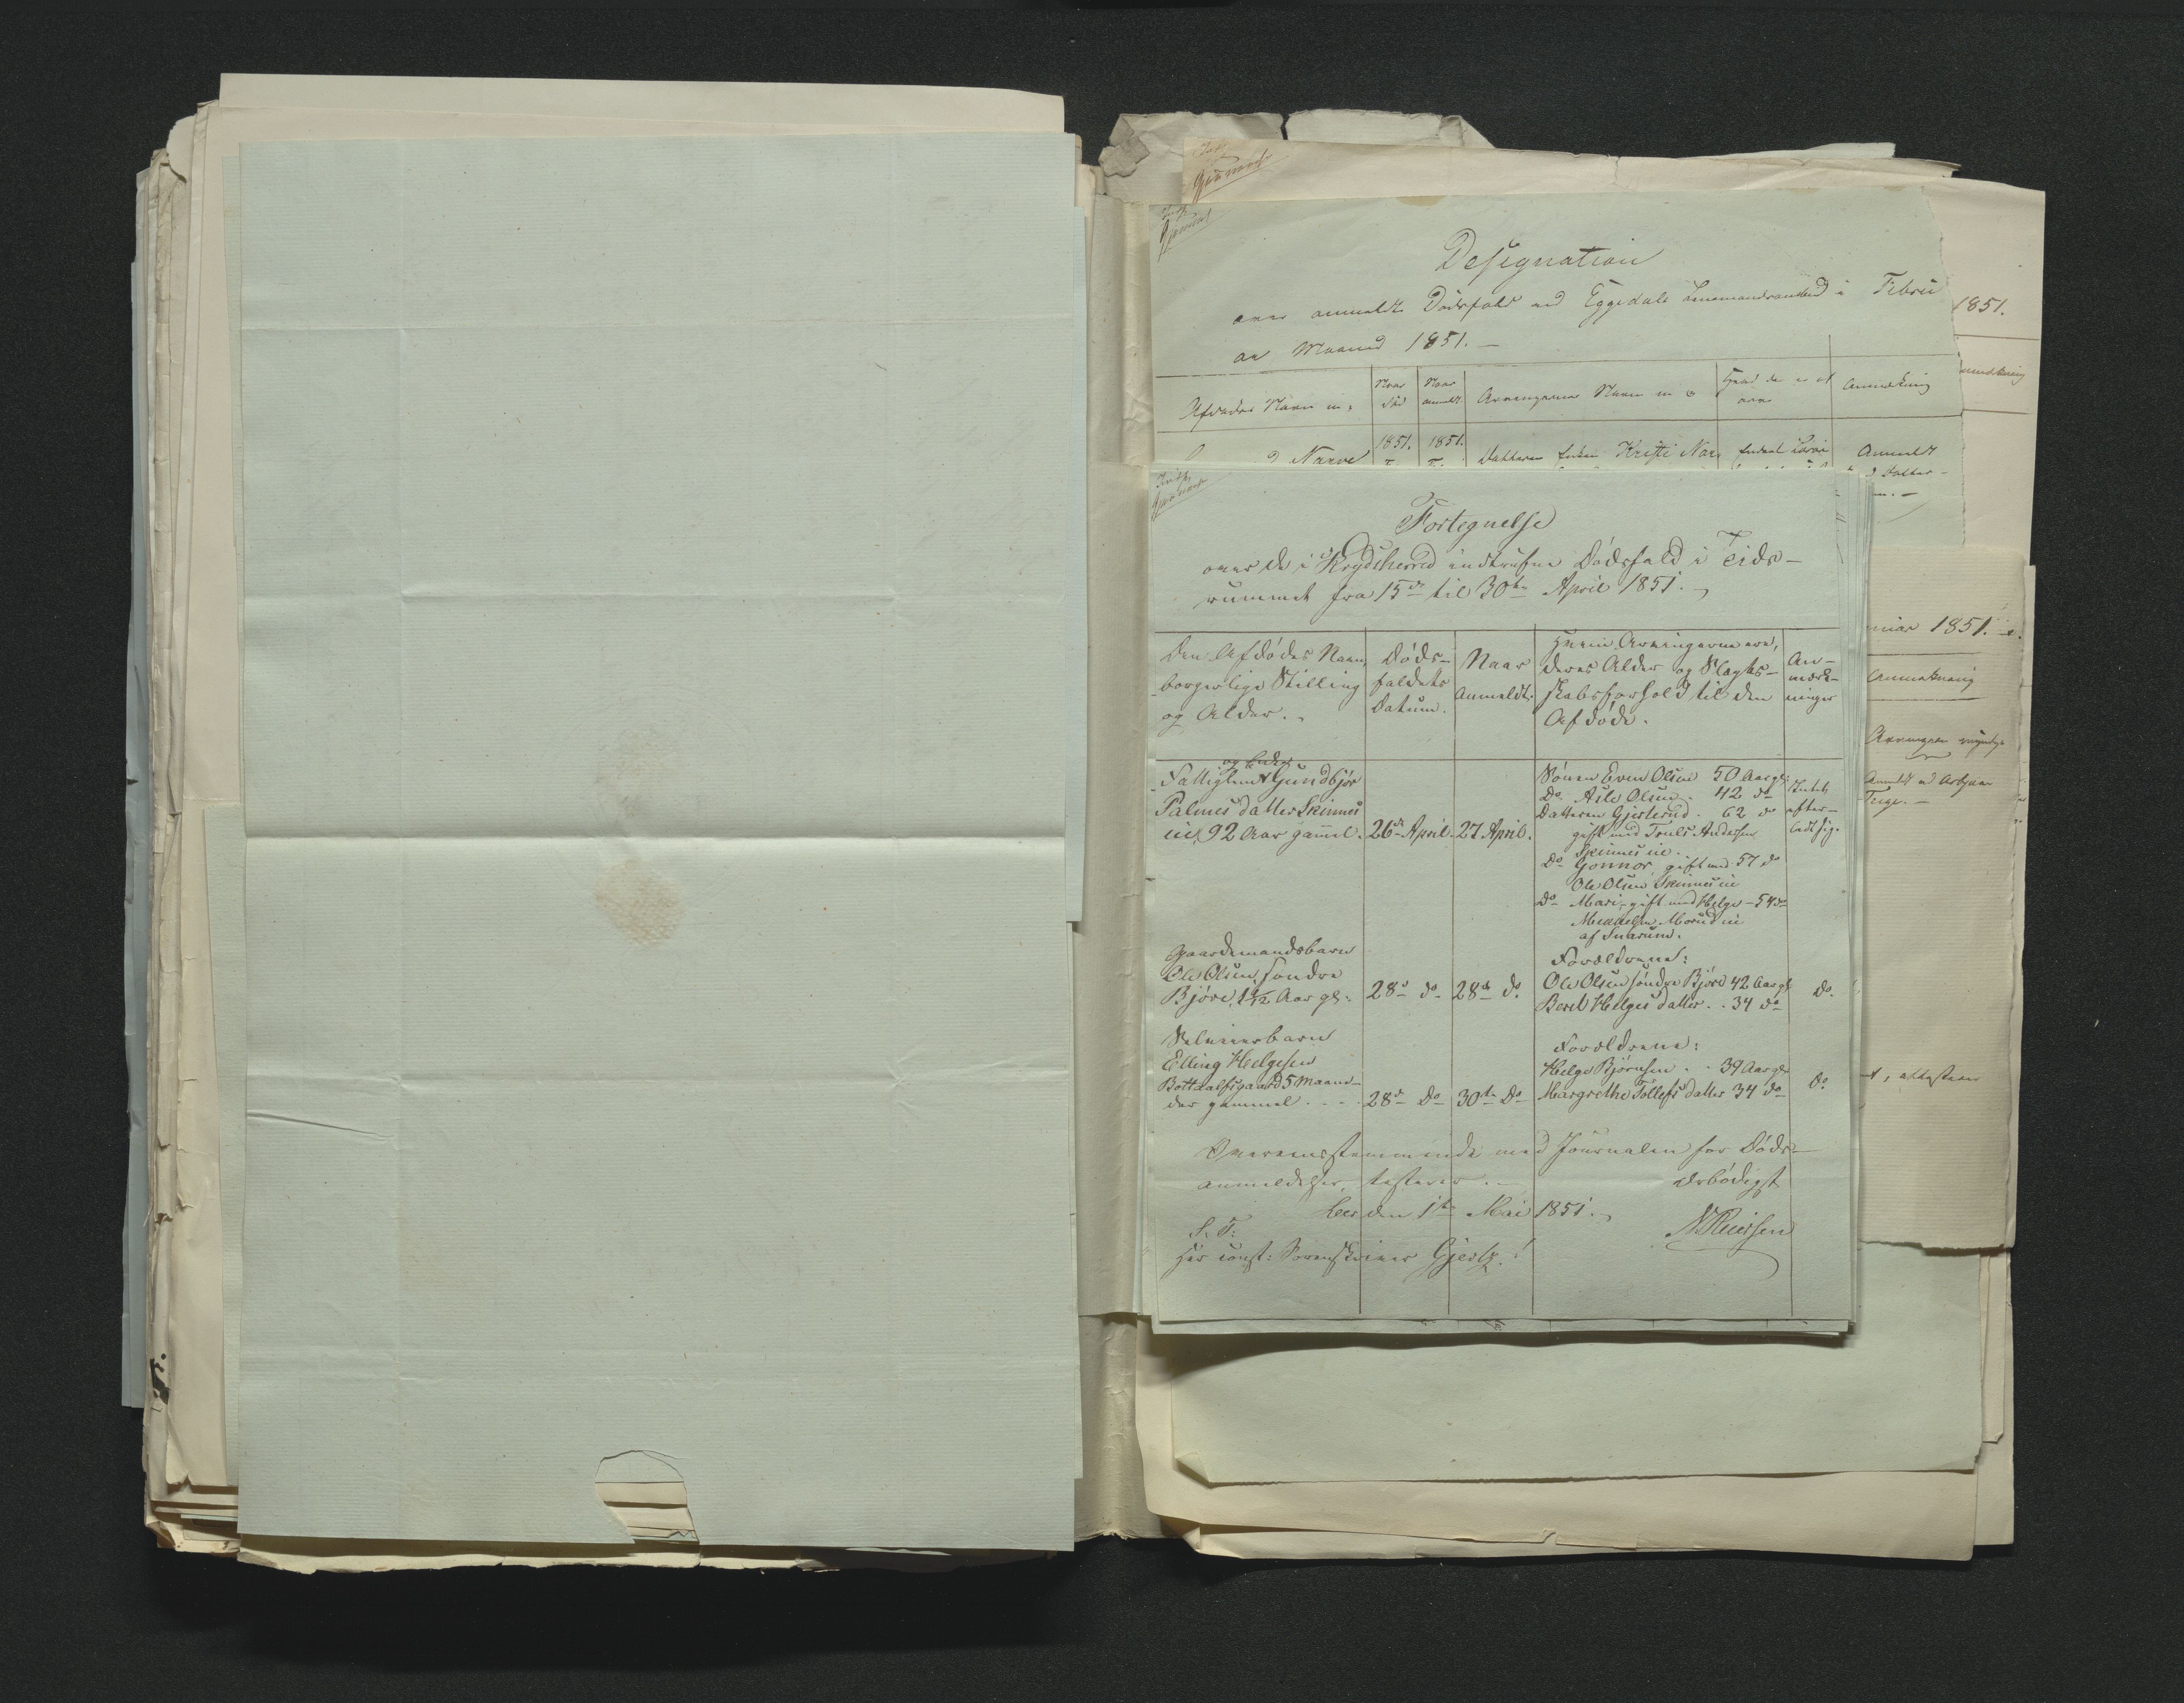 Designation
over anmeldte Dødsfald ved Eggedals Lensmandsombud i Febru
ar Maaned 1851. –
Afdødes Navn m;
Naar død
Naar anmeldt
Arvingernes Navn m v
Hvad der er at arve
Anmerkning
Narve
1851.
1851.
Datteren Enken Kristi Nar,
Anmeldt
1851.
Fortegnelse
over de i Krydsherred indtrufne Dødsfald i Tids-
rummet fra 15de til 30te April 1851.
Den Afdødes Navn,
borgerlige Stilling
og Alder.
Døds-
faldets
Datum.
Naar
Anmeldt.
Hvem Arvingerne ere,
deres Alder og Slægts-
skabsforhold til den
Afdøde.
An-
mærk-
ninger
og Enke
Fattiglem Gundbjør
Palmesdatter Skinnes
eie, 92 Aar gammel.
26de April.
27 April.
Sønnen Even Olsen 50 Aar gl:
Do Asle Olsen . 42 do
Datteren Gjerterud . 62 do
gift med Truls Andersen
Skinnes eie.
Do Gonnor, gift med 57 do
Ole Olsen Skinnes eie
Do Mari, gift med Helge – 54 do
Mikkelsen Morud eie
af Snarum.
Intet
efter-
ladt sig.
Gaardmandsbarn
Ole Olsen søndre
Bjøre, 1 1/12 Aar gl:
28de do
28de do.
Forældrene:
Ole Olsen søndre Bjøre 42 Aar gl
Berit Helgesdatter . . 34 do
do.
Selveierbarn
Elling Helgesen
Bottdalfsgaard 5 Maane-
der gammel . . . .
28de do
30te do
Forældrene:
Helge Bjørnsen . . 39 Aar gl
Margrethe Tollefsdatter 34 do
do.
Overensstemmende med Journalen for Døds-
anmeldelser, testerer.
ærbødigst
Lee den 1te Mai 1851.
S. T.
Hr const: Sorenskriver Gjertz!
nuar 1851.
Anmerkning
Arvingerne myndige
, attesterer